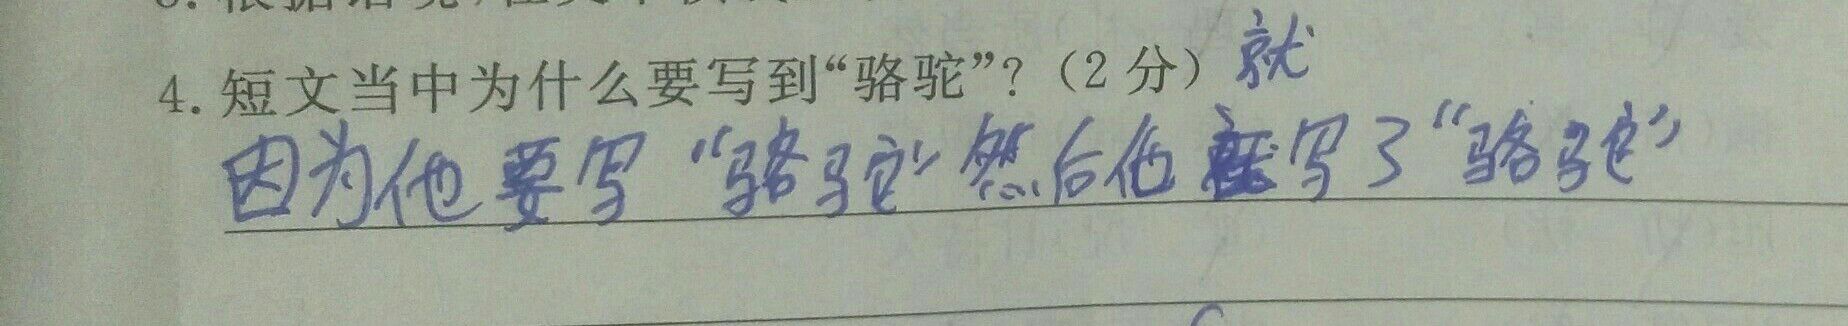 4. 短文当中为什么要写到“骆驼”？（2 分）就
因为他要写“骆驼”然后他就写了“骆驼”